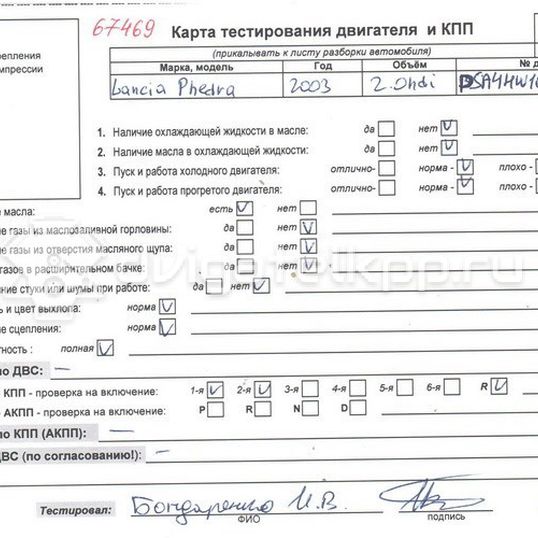 67469 Карта тестирования двигателя и КПП
(прикалывать к листу разборки автомобиля)
репления
мпрессии
Марка, модель Год Объём № д
Lancia Phedra 2003 2.0hdi
1. Наличие охлаждающей жидкости в масле: да нет V
2. Наличие масла в охлаждающей жидкости: да нет V
3. Пуск и работа холодного двигателя: отлично- норма - V плохо -
4. Пуск и работа прогретого двигателя: отлично- норма - V плохо -
е масла: есть V нет
е газы из маслозаливной горловины: да нет V
е газы из отверстия масляного щупа: да нет V
газов в расширительном бачке: да нет V
ние стуки или шумы при работе: да нет V
ь и цвет выхлопа: норма V
ие сцепления: норма V
тность : полная V
по ДВС: —
КПП - проверка на включение: 1-я V 2-я V 3-я 4-я 5-я 6-я R V
АКПП - проверка на включение: P R N D
по КПП (АКПП): —
ДВС (по согласованию!): —
dvigatelkpp.ru
Тестировал: Бондаренко И.В.
ФИО подпись